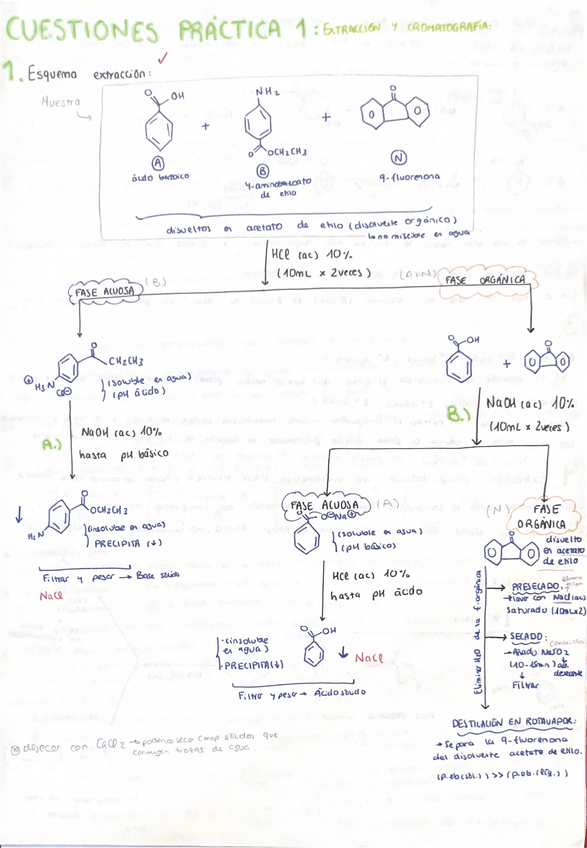 CUESTIONES PRÁCTICA 1: EXTRACCIÓN Y CROMATOGRAFÍA:
1. Esquema extracción: ✓
Muestra
OH
O
+
NH2
O
OCH2CH3
+
O
A
ácido benzoico
B
4-aminobenzoato
de etilo
N
9-fluorenona
disueltos en acetato de etilo (disolvente orgánico)
no miscible en agua
HCl (ac) 10%
(10mL x 2veces)
FASE ACUOSA (B)
(A+N) FASE ORGÁNICA
O
CH2CH3
⊕ H3N
Cl⊖
(soluble en agua)
(pH ácido)
O
OH
+
O
A.)
NaOH (ac) 10%
hasta pH básico
B.)
NaOH (ac) 10%
(10mL x 2veces)
O
OCH2CH3
H2N
(insoluble en agua)
PRECIPITA (↓)
Filtrar y pesar → Base sólida
NaCl
FASE ACUOSA (A)
O
O⊖Na⊕
(soluble en agua)
(pH básico)
HCl (ac) 10%
hasta pH ácido
(insoluble
en agua)
PRECIPITA(↓)
O
OH
↓ NaCl
Filtrar y pesar → Ácido sólido
(N) FASE
ORGÁNICA
O
disuelto
en acetato
de etilo
Eliminar H2O de la f. orgánica
PRESECADO:
→ lavar con NaCl (ac)
saturado (10mL x 2)
SECADO:
→ Añado
(10-15min)
desecante
↓
Filtrar
DESTILACIÓN EN ROTAVAPOR:
→ Separa la 9-fluorenona
del disolvente acetato de etilo.
desecar con CaCl2 → compuestos sólidos que
contengan trazas de agua